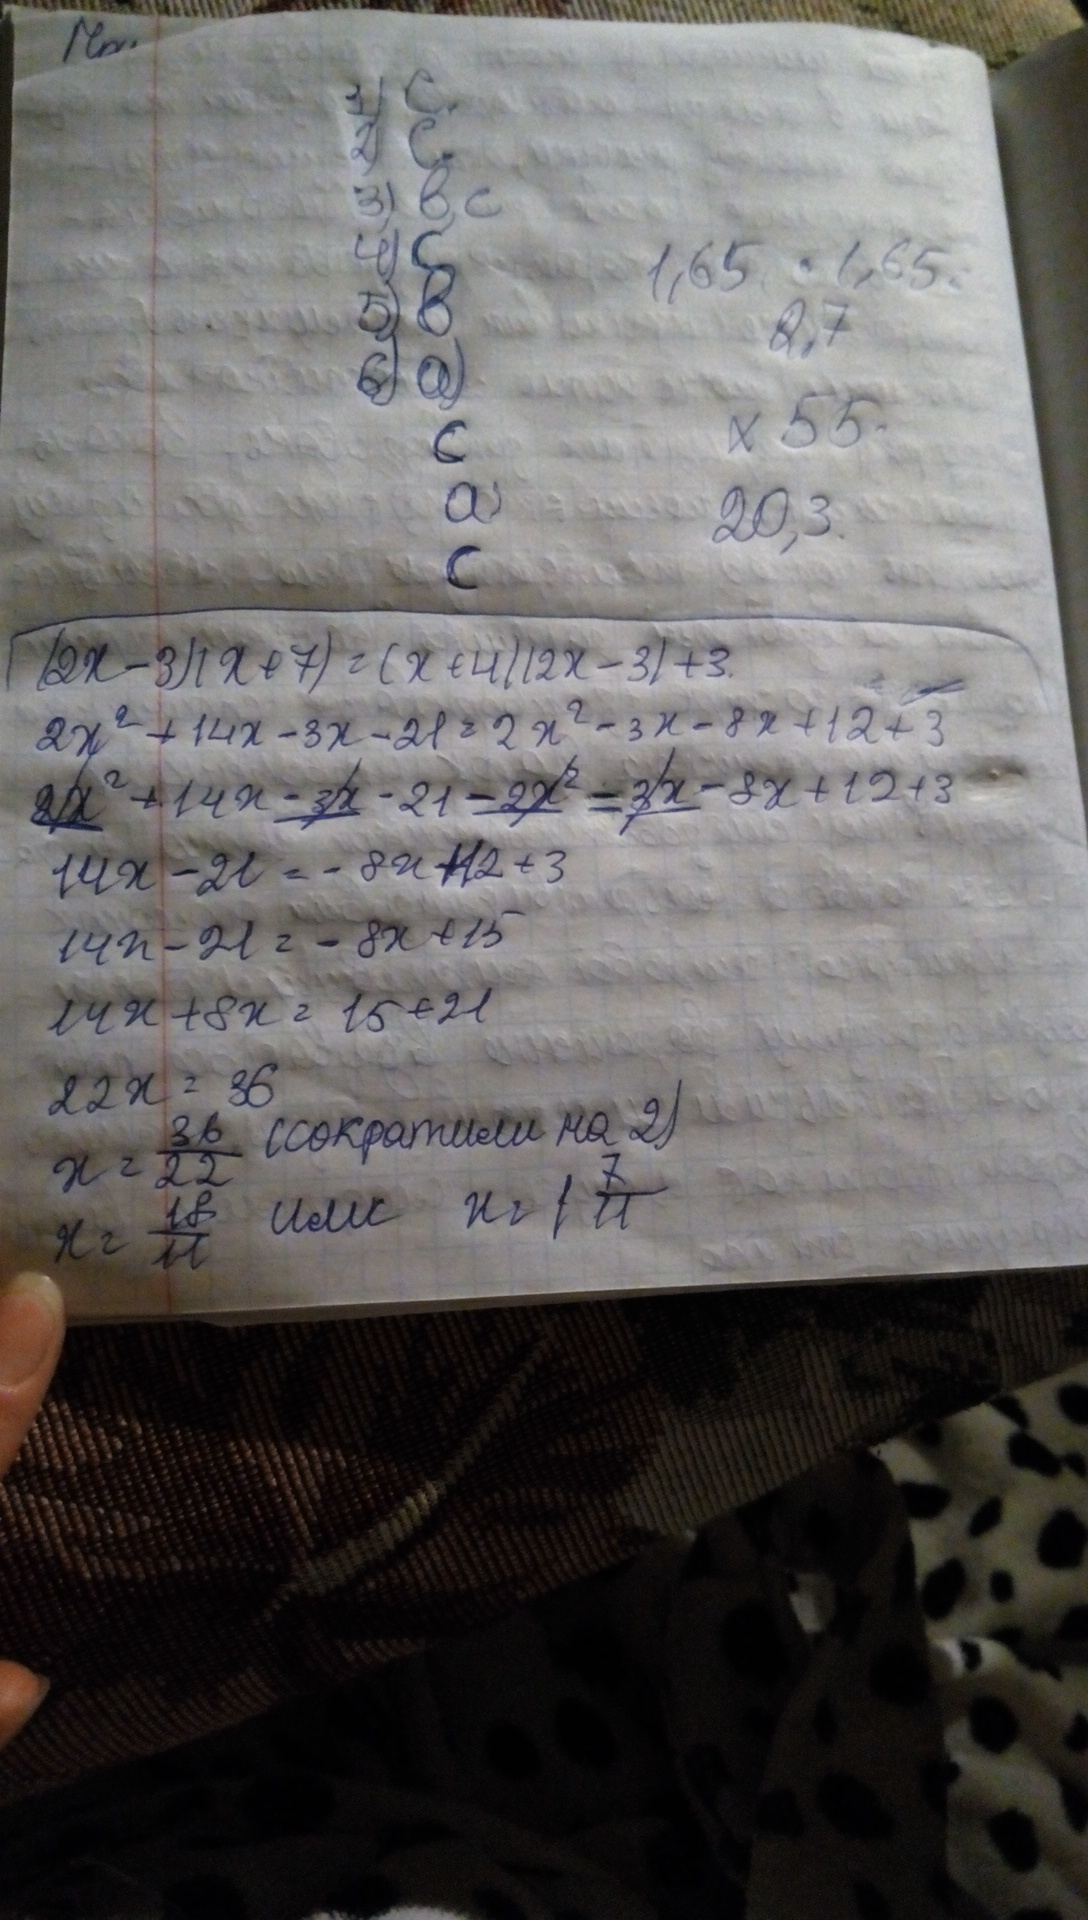 1) C.
2) C.
3) B, C
4) C
5) B
6) a)
C
a)
C
1,65 · 1,65.
2,7
x 55.
20,3.
(2x-3)(x+7)=(x+4)(2x-3)+3.
2x²+14x-3x-21=2x²-3x-8x+12+3
2x²+14x-3x-21-2x²-3x-8x+12+3
14x-21=-8x+12+3
14x-21=-8x+15
14x+8x=15+21
22x=36
x=36/22 (сократили на 2)
x=18/11 или x=1 7/11